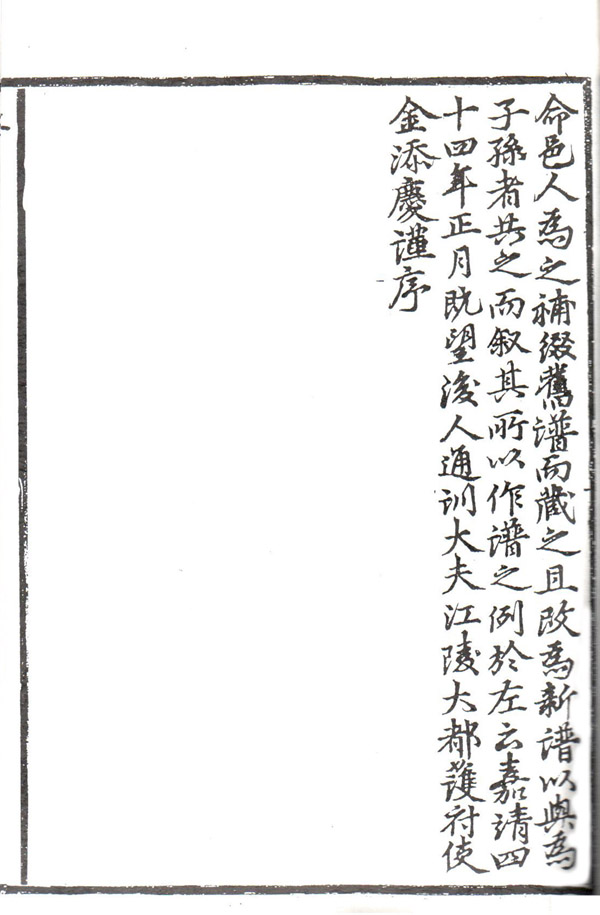 命邑人爲之補綴舊譜而藏之且改爲新譜以與爲
子孫者共之而叙其所以作譜之例於左云嘉靖四
十四年正月旣望後人通訓大夫江陵大都護府使
金添慶謹序